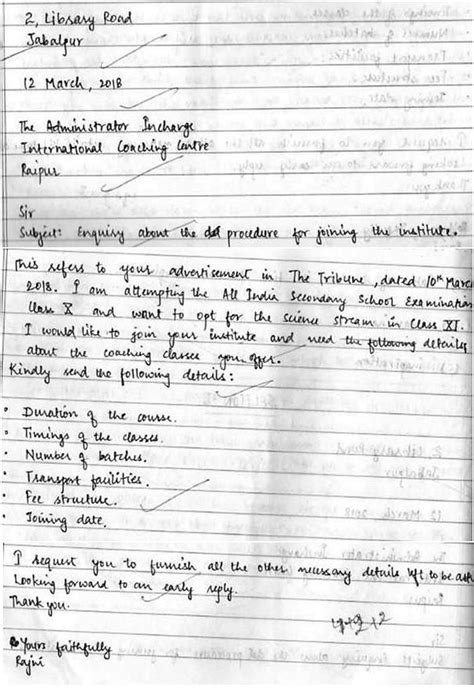 2, Library Road
Jabalpur
12 March, 2018
The Administrator Incharge
International Coaching Centre
Raipur
Sir
Subject: Enquiry about the procedure for joining the institute.
This refers to your advertisement in The Tribune, dated 10th March
2018. I am attempting the All India Secondary School Examination
Class X and want to opt for the science stream in Class XI.
I would like to join your institute and need the following details
about the coaching classes you offer.
Kindly send the following details:
• Duration of the course.
• Timings of the classes.
• Number of batches.
• Transport facilities.
• Fee structure.
• Joining date.
I request you to furnish all the other necessary details left to be
Looking forward to an early reply.
Thank you.
Yours faithfully
Rajni